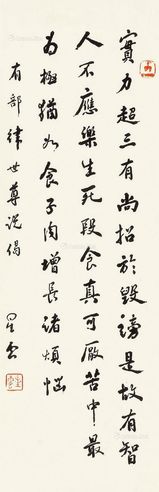 實力超三有尚招於毀謗是故有智
人不應樂生死段食真可厭苦中最
為極猶如食子肉增長諸煩惱
有部律世尊說偈
星雲